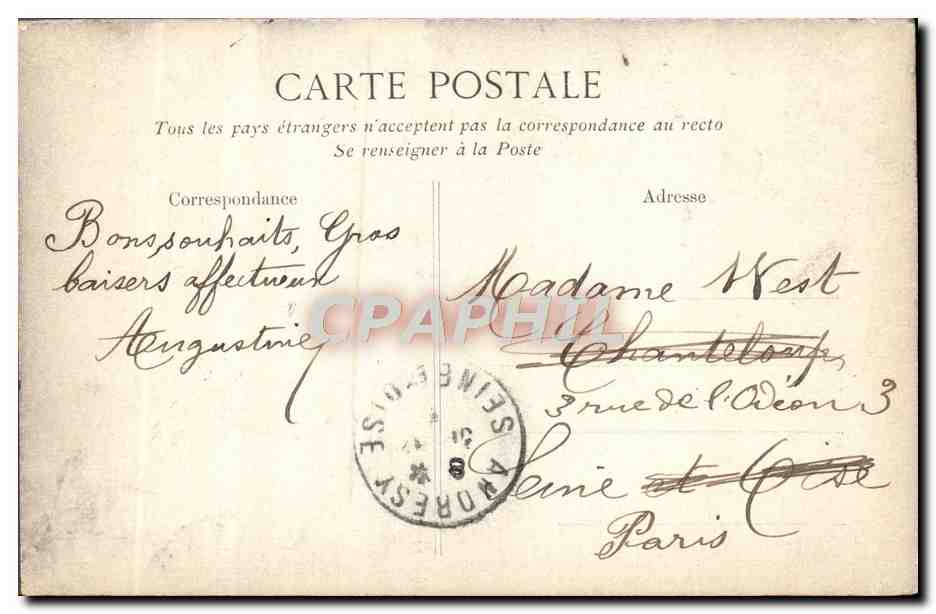 CARTE POSTALE
Tous les pays étrangers n'acceptent pas la correspondance au recto
Se renseigner à la Poste
Correspondance
Bons souhaits, Gros
baisers affectueux
Augustine
Adresse
Madame West
Chanteloup
3 rue de l'Odéon 3
Seine et Oise
Paris
CPAPHIL
ANDRESY SEINE ET OISE